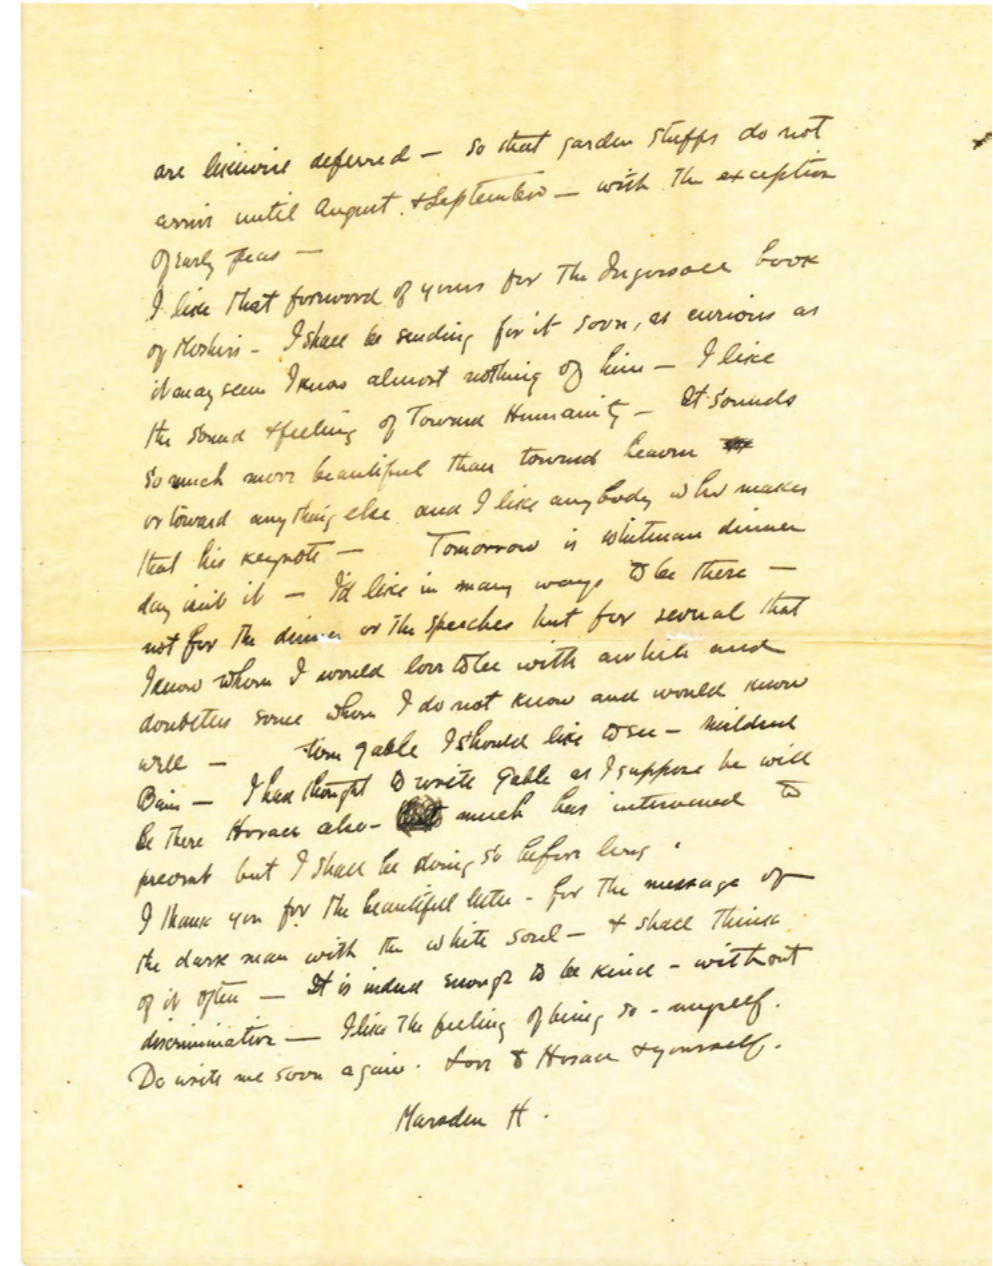 are likewise deferred — so that garden stuffs do not
arrive until August & September — with the exception
of early peas —
I like that foreword of yours for the Ingersoll book
of Moshers - I shall be sending for it soon, as curious as
it may seem I know almost nothing of him — I like
the sound & feeling of Toward Humanity — It sounds
so much more beautiful than toward heaven
or toward anything else and I like anybody who makes
that his keynote — Tomorrow is Whitman dinner
day isn't it — I'd like in many ways to be there —
not for the dinner or the speeches but for several that
I know whom I would love to be with awhile and
doubtless some whom I do not know and would know
well — Tom Gable I should like to see — Mildred
Bain — I had thought to write Gable as I suppose he will
be there Horace also - much has intervened to
prevent but I shall be doing so before long.
I thank you for the beautiful letter - for the message of
the dark man with the white soul — & shall think
of it often — It is indeed enough to be kind - without
discrimination — I like the feeling of being so - myself.
Do write me soon again. Love to Horace & yourself.
Marsden H.